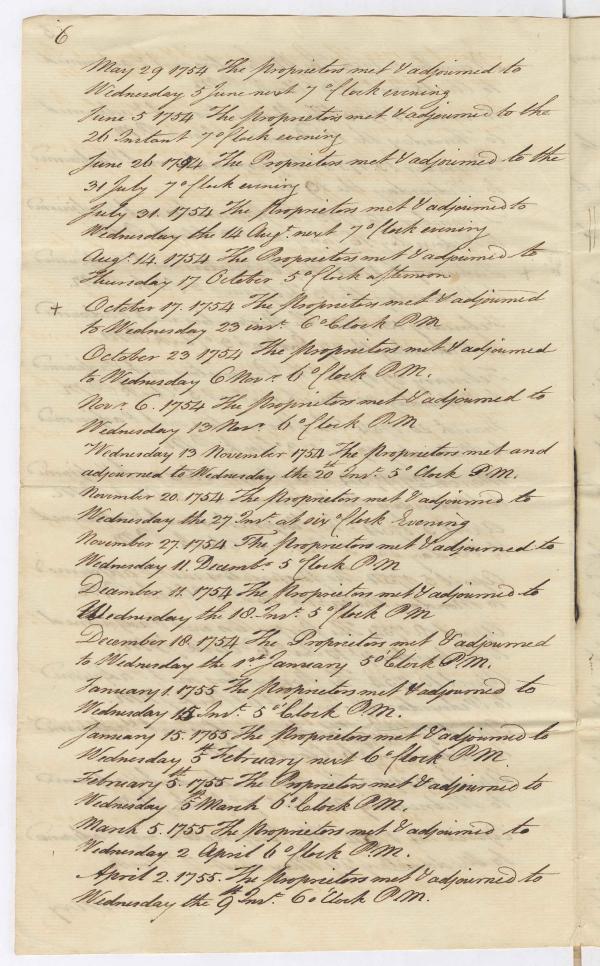 6
May 29 1754 The Proprietors met & adjourned to
Wednesday 5 June next 7 o'Clock evening
June 5 1754 The Proprietors met & adjourned to the
26 Instant 7 o'Clock evening
June 26 1754 The Proprietors met & adjourned to the
31 July 7 o'Clock evening
July 31. 1754 The Proprietors met & adjourned to
Wednesday the 14 Augt. next 7 o'Clock evening
Augt. 14. 1754 The Proprietors met & adjourned to
Thursday 17 October 5 o'Clock afternoon
+ October 17. 1754 The Proprietors met & adjourned
to Wednesday 23 inst. 6 o'Clock P.M
October 23 1754 The Proprietors met & adjourned
to Wednesday 6 Novr. 6 o'Clock P.M.
Novr. 6. 1754 The Proprietors met & adjourned to
Wednesday 13 Novr. 6 o'Clock P.M
Wednesday 13 November 1754 The Proprietors met and
adjourned to Wednesday the 20th Inst. 5 o'Clock P.M.
November 20. 1754 The Proprietors met & adjourned to
Wednesday the 27 Inst. at six o'Clock Evening
November 27. 1754 The Proprietors met & adjourned to
Wednesday 11. Decembr. 5 o'Clock P.M
December 11. 1754 The Proprietors met & adjourned to
Wednesday the 18. Inst. 5 o'Clock P.M
December 18. 1754 The Proprietors met & adjourned
to Wednesday the 1st January 5 o'Clock P.M.
January 1. 1755 The Proprietors met & adjourned to
Wednesday 15 Inst. 5 o'Clock P.M.
January 15. 1755 The Proprietors met & adjourned to
Wednesday 5th February next 6 o'Clock P.M.
February 5th. 1755 The Proprietors met & adjourned to
Wednesday 5th March 6 o'Clock P.M.
March 5. 1755 The Proprietors met & adjourned to
Wednesday 2 April 6 o'Clock P.M.
April 2. 1755. The Proprietors met & adjourned to
Wednesday the 9th Inst. 6 o'Clock P.M.